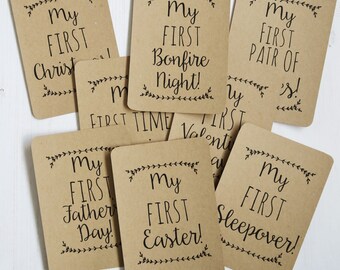 My
FIRST
My
FIRST
Bonfire
Night!
My
FIRST
PAIR OF
My
FIRST TIME
FIRST
My
FIRST
Father
Day!
My
FIRST
Easter!
My
FIRST
Sleepover!